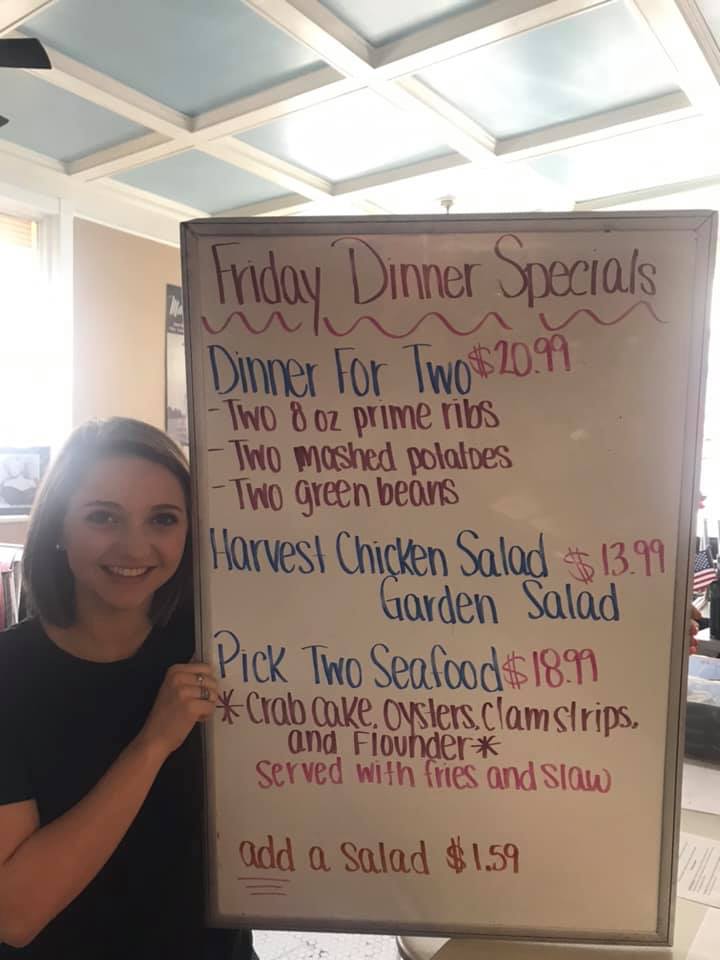 Friday Dinner Specials
Dinner For Two $20.99
- Two 8 oz prime ribs
- Two mashed potatoes
- Two green beans
Harvest Chicken Salad $13.99
Garden Salad
Pick Two Seafood $18.99
*Crab cake, oysters, clam strips,
and Flounder*
served with fries and slaw
add a salad $1.59